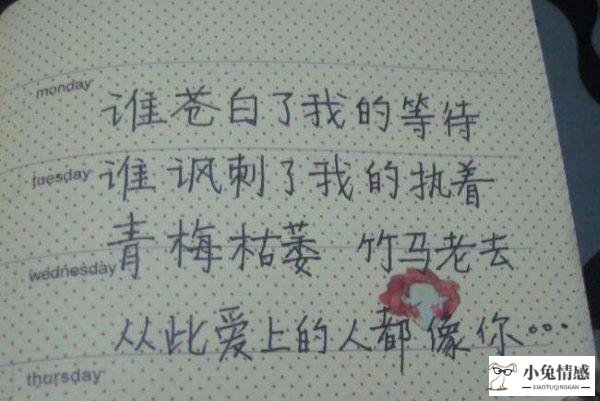 monday
谁苍白了我的等待
tuesday
谁讽刺了我的执着
青梅枯萎 竹马老去
wednesday
从此爱上的人都像你...
thursday
小兔情感
XIAOTUQINGGAN